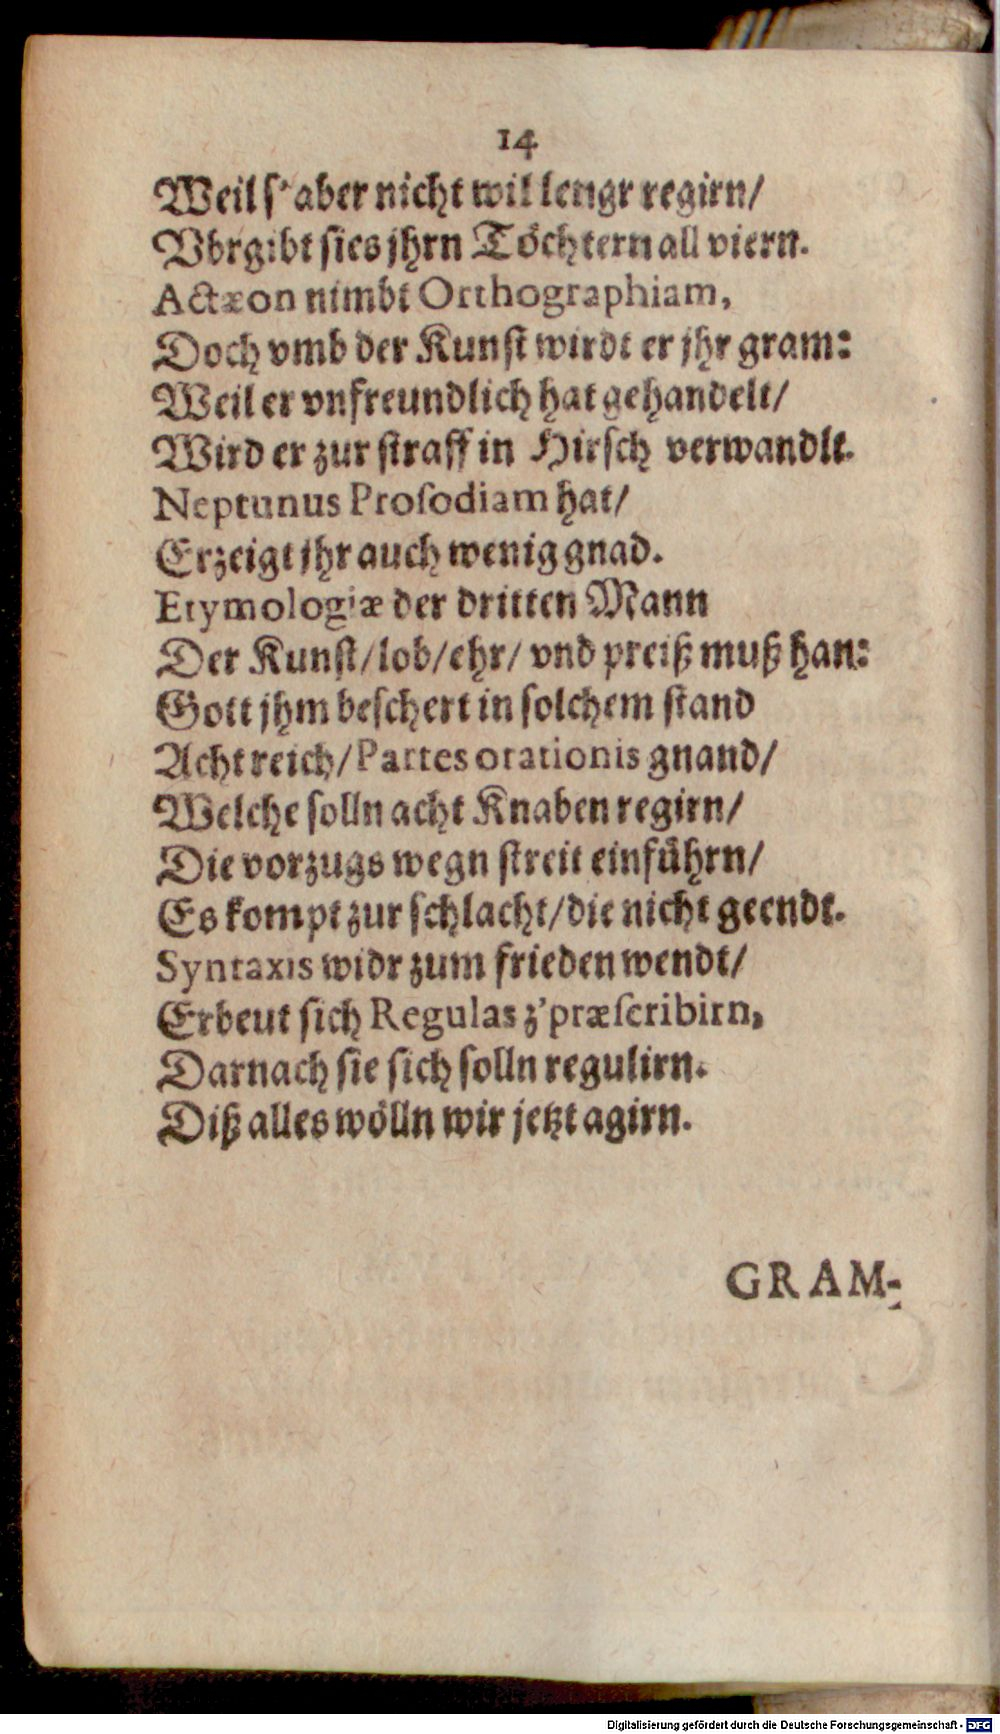 14
Weil s' aber nicht wil lengr regirn/
Vbrgibt sies jhrn Töchtern all viern.
Actæon nimbt Orthographiam,
Doch vmb der Kunst wirdt er jhr gram:
Weil er vnfreundlich hat gehandelt/
Wird er zur straff in Hirsch verwandlt.
Neptunus Prosodiam hat/
Erzeigt jhr auch wenig gnad.
Etymologiæ der dritten Mann
Der Kunst/lob/ehr/ vnd preiß muß han:
Gott jhm beschert in solchem stand
Acht reich/Partes orationis gnand/
Welche solln acht Knaben regirn/
Die vorzugs wegn streit einführn/
Es kompt zur schlacht/die nicht geendt.
Syntaxis widr zum frieden wendt/
Erbeut sich Regulas z'præscribirn,
Darnach sie sich solln regulirn.
Diß alles wölln wir jetzt agirn.
GRAM-
Digitalisierung gefördert durch die Deutsche Forschungsgemeinschaft - DFG